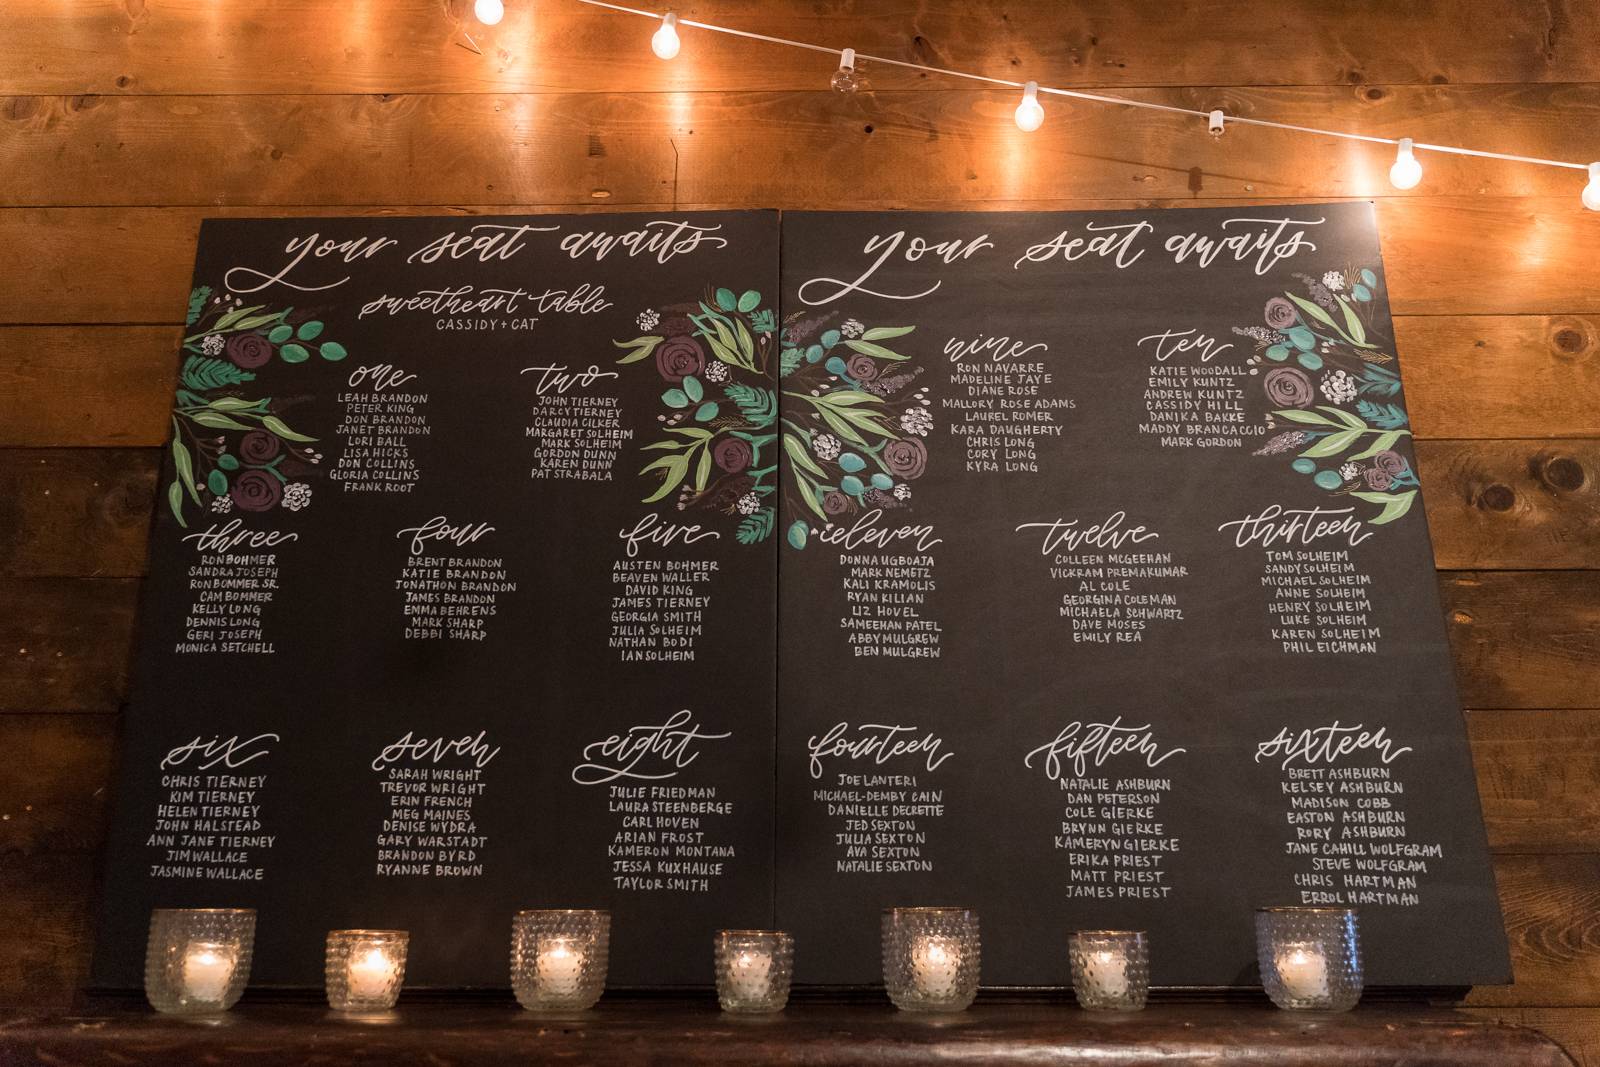 your seat awaits
sweetheart table
CASSIDY + CAT
one
LEAH BRANDON
PETER KING
DON BRANDON
JANET BRANDON
LORI BALL
LISA HICKS
DON COLLINS
GLORIA COLLINS
FRANK ROOT
two
JOHN TIERNEY
DARCY TIERNEY
CLAUDIA CILKER
MARGARET SOLHEIM
MARK SOLHEIM
GORDON DUNN
KAREN DUNN
PAT STRABALA
three
RON BOHMER
SANDRA JOSEPH
RON BOMMER SR.
CAM BOMMER
KELLY LONG
DENNIS LONG
GERI JOSEPH
MONICA SETCHELL
four
BRENT BRANDON
KATIE BRANDON
JONATHON BRANDON
JAMES BRANDON
EMMA BEHRENS
MARK SHARP
DEBBI SHARP
five
AUSTEN BOHMER
BEAVEN WALLER
DAVID KING
JAMES TIERNEY
GEORGIA SMITH
JULIA SOLHEIM
NATHAN BODI
IAN SOLHEIM
six
CHRIS TIERNEY
KIM TIERNEY
HELEN TIERNEY
JOHN HALSTEAD
ANN JANE TIERNEY
JIM WALLACE
JASMINE WALLACE
seven
SARAH WRIGHT
TREVOR WRIGHT
ERIN FRENCH
MEG MAINES
DENISE WYDRA
GARY WARSTADT
BRANDON BYRD
RYANNE BROWN
eight
JULIE FRIEDMAN
LAURA STEENBERGE
CARL HOVEN
ARIAN FROST
KAMERON MONTANA
JESSA KUXHAUSE
TAYLOR SMITH
your seat awaits
nine
RON NAVARRE
MADELINE JAYE
DIANE ROSE
MALLORY ROSE ADAMS
LAUREL ROMER
KARA DAUGHERTY
CHRIS LONG
CORY LONG
KYRA LONG
ten
KATIE WOODALL
EMILY KUNTZ
ANDREW KUNTZ
CASSIDY HILL
DANIKA BAKKE
MADDY BRANCACCIO
MARK GORDON
eleven
DONNA UGBOAJA
MARK NEMETZ
KALI KRAMOLIS
RYAN KILIAN
LIZ HOVEL
SAMEEHAN PATEL
ABBY MULGREW
BEN MULGREW
twelve
COLLEEN MCGEEHAN
VICKRAM PREMAKUMAR
AL COLE
GEORGINA COLEMAN
MICHAELA SCHWARTZ
DAVE MOSES
EMILY REA
thirteen
TOM SOLHEIM
SANDY SOLHEIM
MICHAEL SOLHEIM
ANNE SOLHEIM
HENRY SOLHEIM
LUKE SOLHEIM
KAREN SOLHEIM
PHIL EICHMAN
fourteen
JOE LANTERI
MICHAEL-DEMBY CAIN
DANIELLE DECRETTE
JED SEXTON
JULIA SEXTON
AVA SEXTON
NATALIE SEXTON
fifteen
NATALIE ASHBURN
DAN PETERSON
COLE GIERKE
BRYNN GIERKE
KAMERYN GIERKE
ERIKA PRIEST
MATT PRIEST
JAMES PRIEST
sixteen
BRETT ASHBURN
KELSEY ASHBURN
MADISON COBB
EASTON ASHBURN
RORY ASHBURN
JANE CAHILL WOLFGRAM
STEVE WOLFGRAM
CHRIS HARTMAN
ERROL HARTMAN